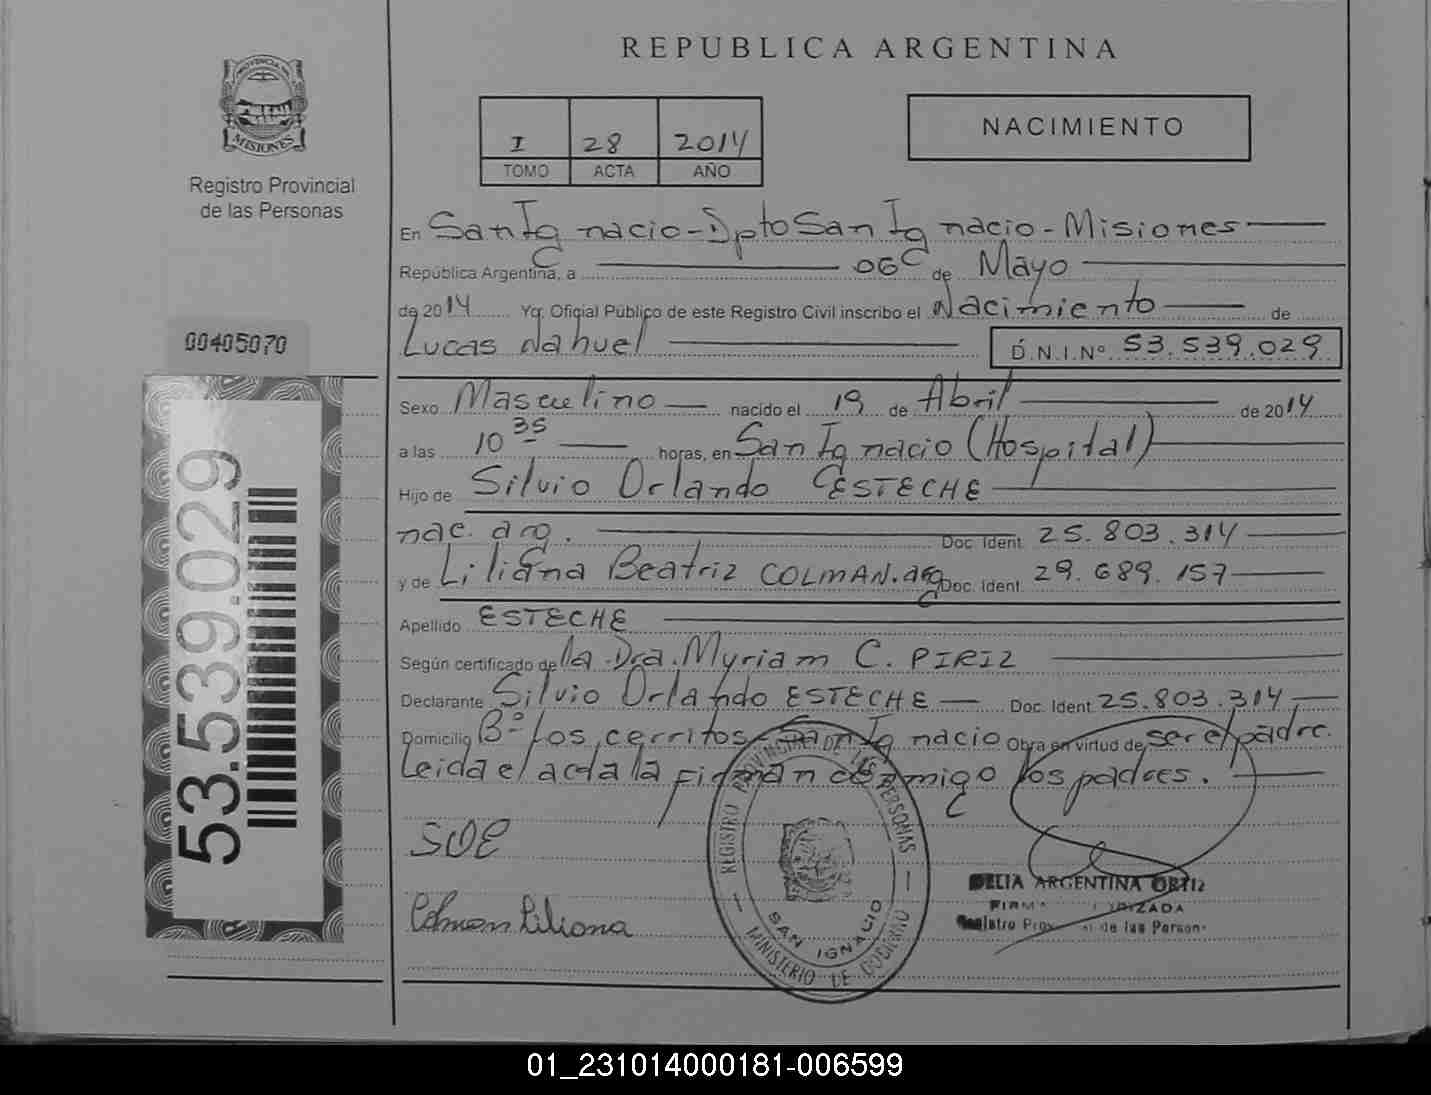 REPUBLICA ARGENTINA
PROVINCIA DE
MISIONES
Registro Provincial
de las Personas
I 28 2014
TOMO ACTA AÑO
NACIMIENTO
En San Ignacio - Dpto San Ignacio - Misiones
República Argentina, a 06 de Mayo
de 2014 Yo, Oficial Público de este Registro Civil inscribo el Nacimiento de
Lucas Nahuel D.N.I.Nº 53.539.029
00405070
53.539.029
Sexo Masculino nacido el 19 de Abril de 2014
a las 10 35 horas, en San Ignacio (Hospital)
Hijo de Silvio Orlando ESTECHE
nac. arg. Doc. Ident. 25.803.314
y de Liliana Beatriz COLMAN. arg Doc. Ident. 29.689.157
Apellido ESTECHE
Según certificado de la Dra. Myriam C. PIRIZ
Declarante Silvio Orlando ESTECHE Doc. Ident. 25.803.314
Domicilio Bº Los cerritos San Ignacio Obra en virtud de ser el padre.
Leida el acta la firman conmigo los padres.
SOE
Colman Liliana
REGISTRO PROVINCIAL DE LAS PERSONAS
SAN IGNACIO
MINISTERIO DE GOBIERNO
DELIA ARGENTINA ORTIZ
Registro de las Person
01_231014000181-006599